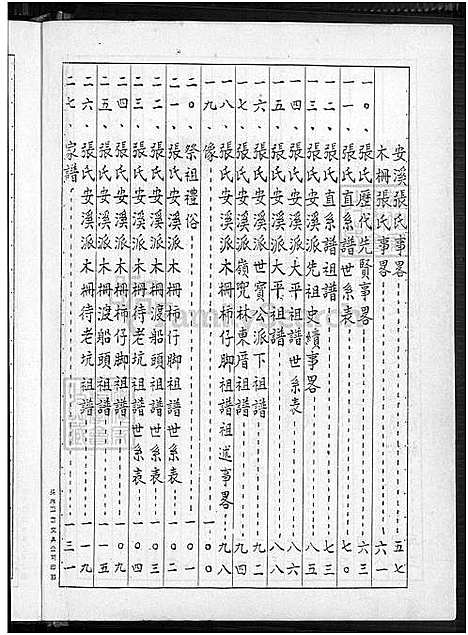 安溪張氏事畧 五七
木柵張氏事畧 六一
一〇、張氏歷代先賢事畧 六三
一一、張氏直系譜世系表 七〇
一二、張氏直系譜祖譜 七三
一三、張氏安溪派先祖史績事畧 八五
一四、張氏安溪派大平祖譜世系表 八六
一五、張氏安溪派大平祖譜 八八
一六、張氏安溪派世寶公派下祖譜 九二
一七、張氏安溪派嶺兜林東厝祖譜 九四
一八、張氏安溪派木柵柿仔脚祖譜祖述事畧 九八
一九、像 一〇〇
二〇、祭祖禮俗 一〇一
二一、張氏安溪派木柵柿仔脚祖譜世系表 一〇二
二二、張氏安溪派木柵渡船頭祖譜世系表 一〇三
二三、張氏安溪派木柵待老坑祖譜世系表 一〇四
二四、張氏安溪派木柵柿仔脚祖譜 一〇九
二五、張氏安溪派木柵渡船頭祖譜 一一五
二六、張氏安溪派木柵待老坑祖譜 一一九
二七、家譜 一三一